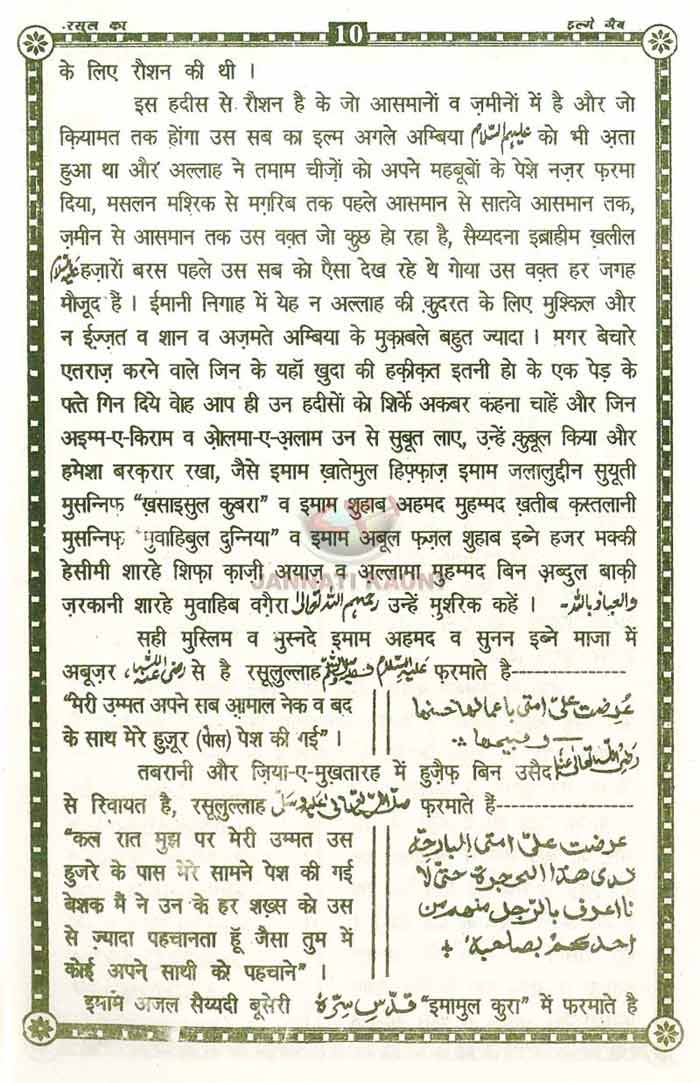 रसूल का 10 इल्मे ग़ैब
के लिए रौशन की थी ।
इस हदीस से रौशन है के जो आसमानों व ज़मीनों में है और जो
क़ियामत तक होंगा उस सब का इल्म अगले अम्बिया علیہم السلام को भी अता
हुआ था और अल्लाह ने तमाम चीज़ों को अपने महबूबों के पेशे नज़र फ़रमा
दिया, मसलन मश्रिक से मग़रिब तक पहले आसमान से सातवे आसमान तक,
ज़मीन से आसमान तक उस वक़्त जो कुछ हो रहा है, सैय्यदना इब्राहीम ख़लील
علیہ السلام हज़ारों बरस पहले उस सब को ऐसा देख रहे थे गोया उस वक़्त हर जगह
मौजूद हैं । ईमानी निगाह में येह न अल्लाह की क़ुदरत के लिए मुश्किल और
न ईज़्ज़त व शान व अज़मते अम्बिया के मुक़ाबले बहुत ज्यादा । मगर बेचारे
एतराज़ करने वाले जिन के यहाँ ख़ुदा की हक़ीक़त इतनी हो के एक पेड़ के
पत्ते गिन दिये वोह आप ही उन हदीसों को शिर्के अकबर कहना चाहें और जिन
अइम्म-ए-किराम व ओलमा-ए-अलाम उन से सुबूत लाए, उन्हें क़ुबूल किया और
हमेशा बरक़रार रखा, जैसे इमाम ख़ातेमुल हिफ़्फाज़ इमाम जलालुद्दीन सुयूती
मुसन्निफ़ "ख़साइसुल कुबरा" व इमाम शुहाब अहमद मुहम्मद ख़तीब क़स्तलानी
मुसन्निफ़ "मुवाहिबुल दुन्निया" व इमाम अबूल फज़ल शुहाब इब्ने हजर मक्की
हेसीमी शारहे शिफ़ा क़ाज़ी अयाज़ व अल्लामा मुहम्मद बिन अब्दुल बाक़ी
JANNATI KAUN?
ज़रकानी शारहे मुवाहिब वग़ैरा رحمہم اللہ تعالیٰ उन्हें मुशरिक कहें । والعیاذ باللہ۔
सही मुस्लिम व मुस्नदे इमाम अहमद व सुनन इब्ने माजा में
अबूज़र, رضی اللہ عنہ से है रसूलुल्लाह फ़रमाते है-
"मेरी उम्मत अपने सब आमाल नेक व बद
के साथ मेरे हुज़ूर (पास) पेश की गई" ।
عرضت علیّ امتی باعمالها حسنها
و قبیحها
तबरानी और ज़िया-ए-मुख़तारह में हुज़ैफ़ बिन उसैद رضی اللہ تعالیٰ عنہ
से रिवायत है, रसूलुल्लाह صلی اللہ تعالیٰ علیہ وسلم फ़रमाते हैं-
"कल रात मुझ पर मेरी उम्मत उस
हुजरे के पास मेरे सामने पेश की गई
बेशक मैं ने उन के हर शख़्स को उस
से ज़्यादा पहचानता हूँ जैसा तुम में
कोई अपने साथी को पहचाने" ।
عرضت علیّ امتی البارحة
لدی هذا الحجرة حتی لا
نا اعرف بالرجل منهم من
احدکم بصاحبه +
इमाम अजल सैय्यदी बूसेरी قدس سرہ "इमामुल कुरा" में फरमाते है